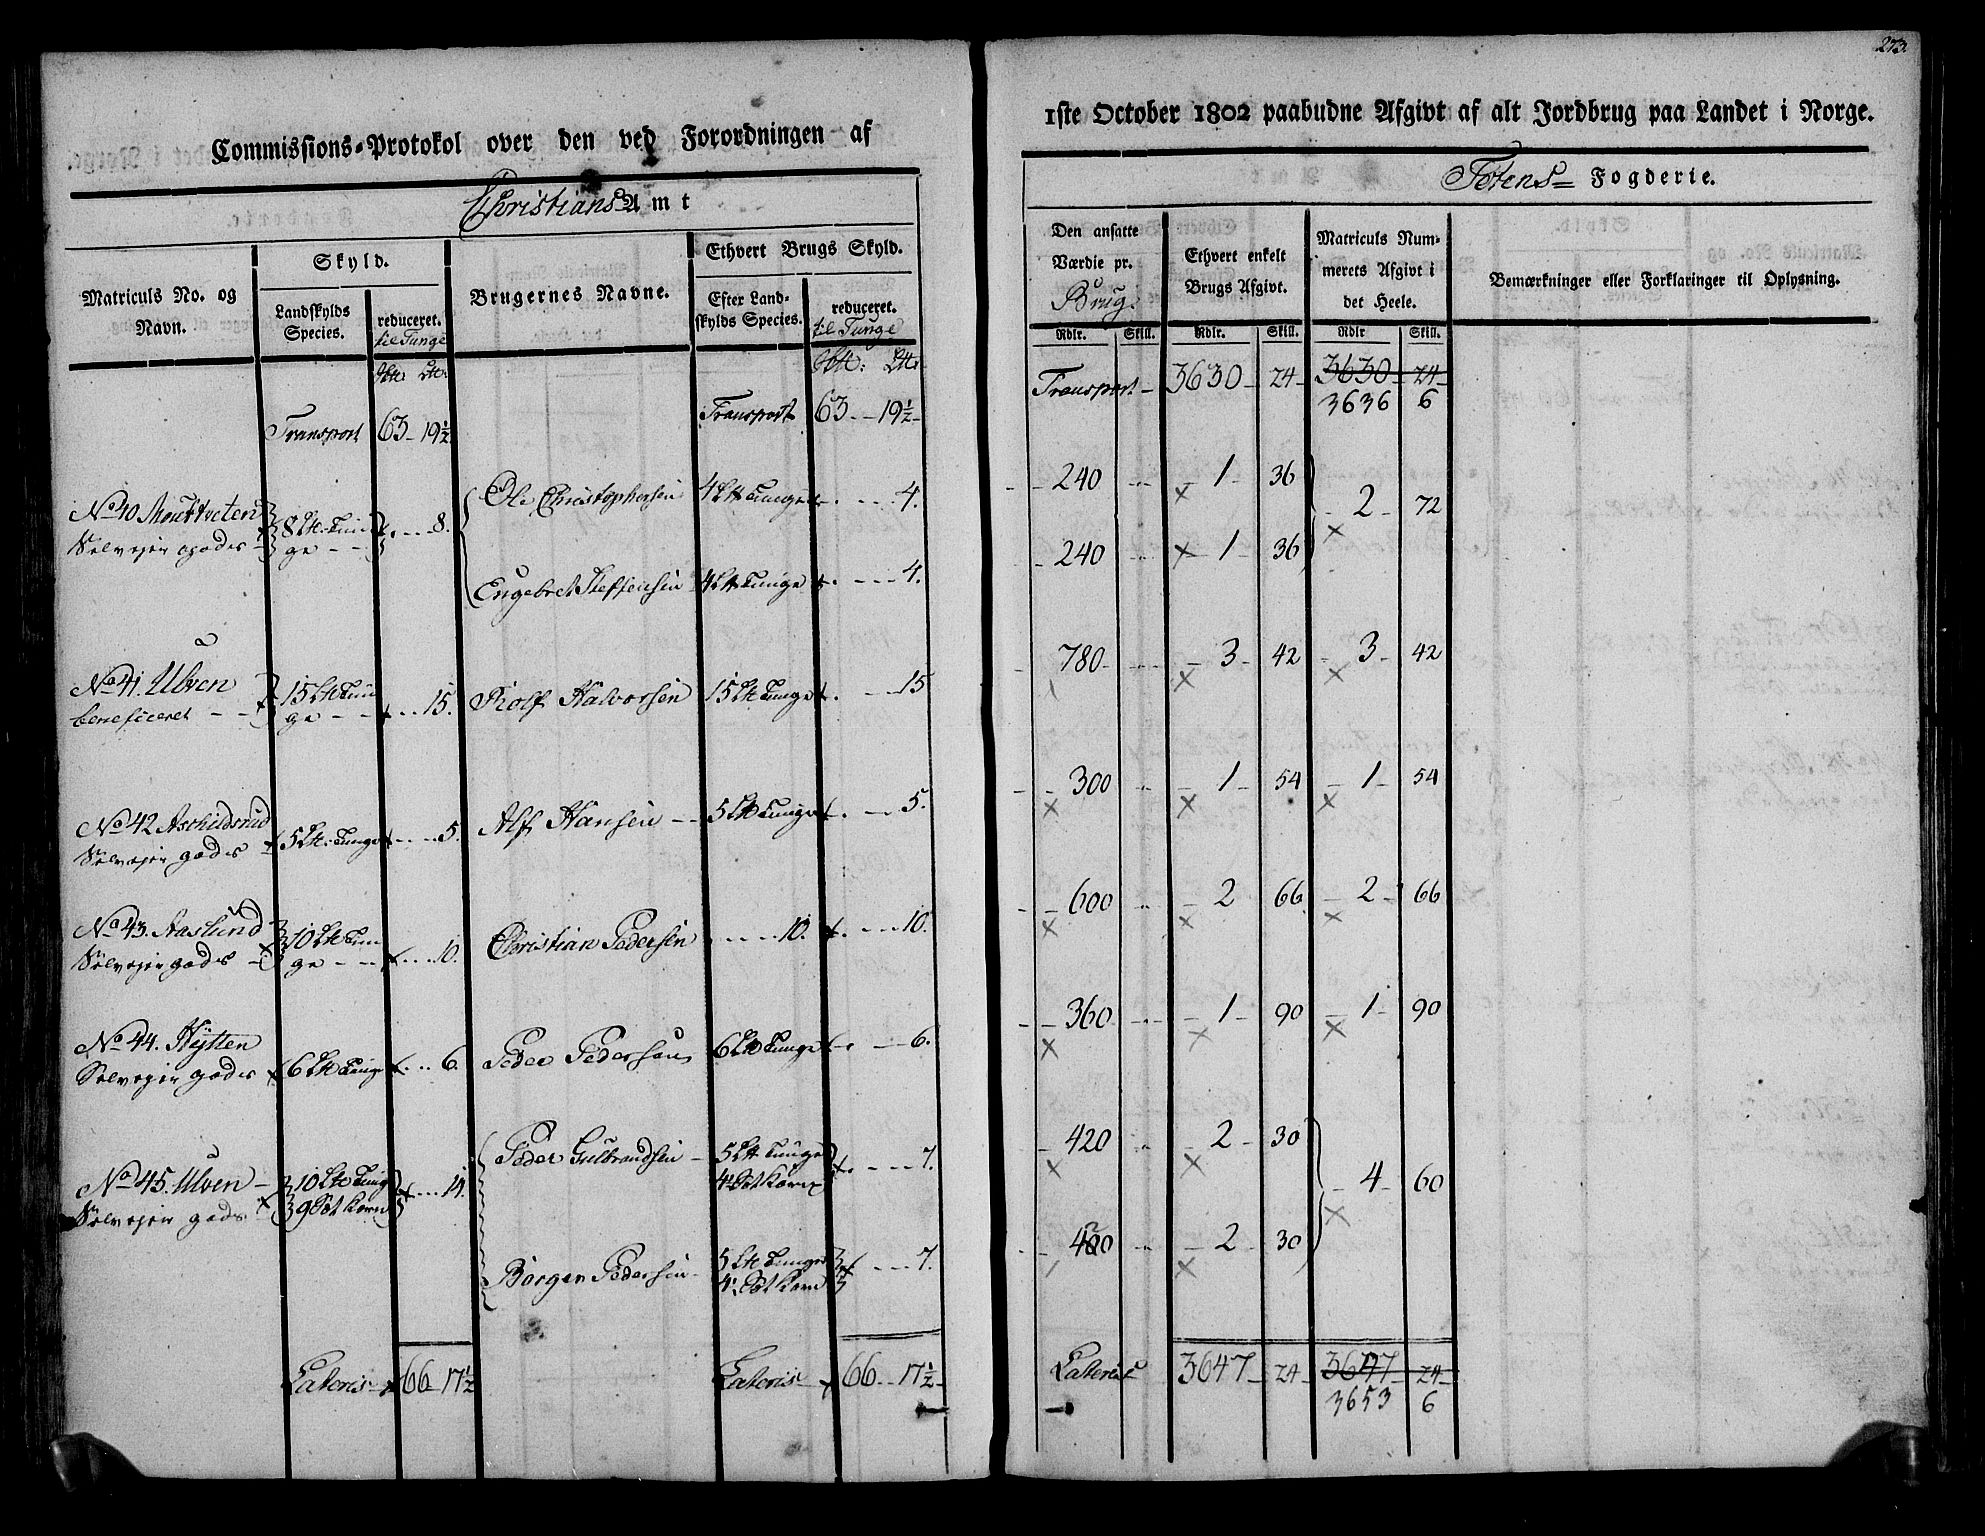 273.
Commissions-Protokol over den ved Forordningen af
1ste October 1802 paabudne Afgivt af alt Jordbrug paa Landet i Norge.
Christians Amt
Totens Fogderie.
Matriculs No. og Navn.
Skyld.
Landskylds Species.
reduceret. til Tunge
Brugernes Navne.
Ethvert Brugs Skyld.
Efter Landskylds Species.
reduceret. til Tunge
Den ansatte Værdie pr. Brug.
Ethvert enkelt Brugs Afgivt.
Matriculs Nummerets Afgivt i det Heele.
Bemærkninger eller Forklaringer til Oplysning.
Rdlr. Skill. Rdlr. Skill. Rdlr Skill.
Transport 63 - 19½ Transport 63 - 19½
Transport - 3630 - 24 - 3630 - 24
3636 6
No 40 Selvejer gods 8 Lt. Tunge 8.
Ole Christophersen 4 Lt Tunge 4. 240 1 36 2 72
Engebret Steffensen 4 Lt Tunge 4. 240 1 36
No 41. Ulven beneficeret 15 Lt Tunge 15. Rolf Halvorsen 15 Lt Tunge 15 780 3 42 3 42
No 42 Aschildsrud Selvejer gods 5 Lt. Tunge 5. Alf Hansen 5 Lt Tunge 5. 300 1 54 1 54
No 43. Aaslund Selvejer gods 10 Lt Tunge 10. Christian Pedersen 10. 10. 600 2 66 2 66
No 44. Hytten Selvejer gods 6 Lt Tunge 6. Peder Pedersen 6 Lt Tunge 6. 360 1 90 1 90
No 45. Ulven Selvejer gods 10 Lt Tunge 9 Korn 14.
Peder Gulbrandsen 5 Lt Tunge 4½ Korn 7. 420 2 30 4 60
Borger Pedersen 5 Lt Tunge 4½ Korn 7. 420 2 30
Lateris 66 17½ Lateris 66 - 17½
Lateris 3647 - 24 - 3647 - 24
3653 6